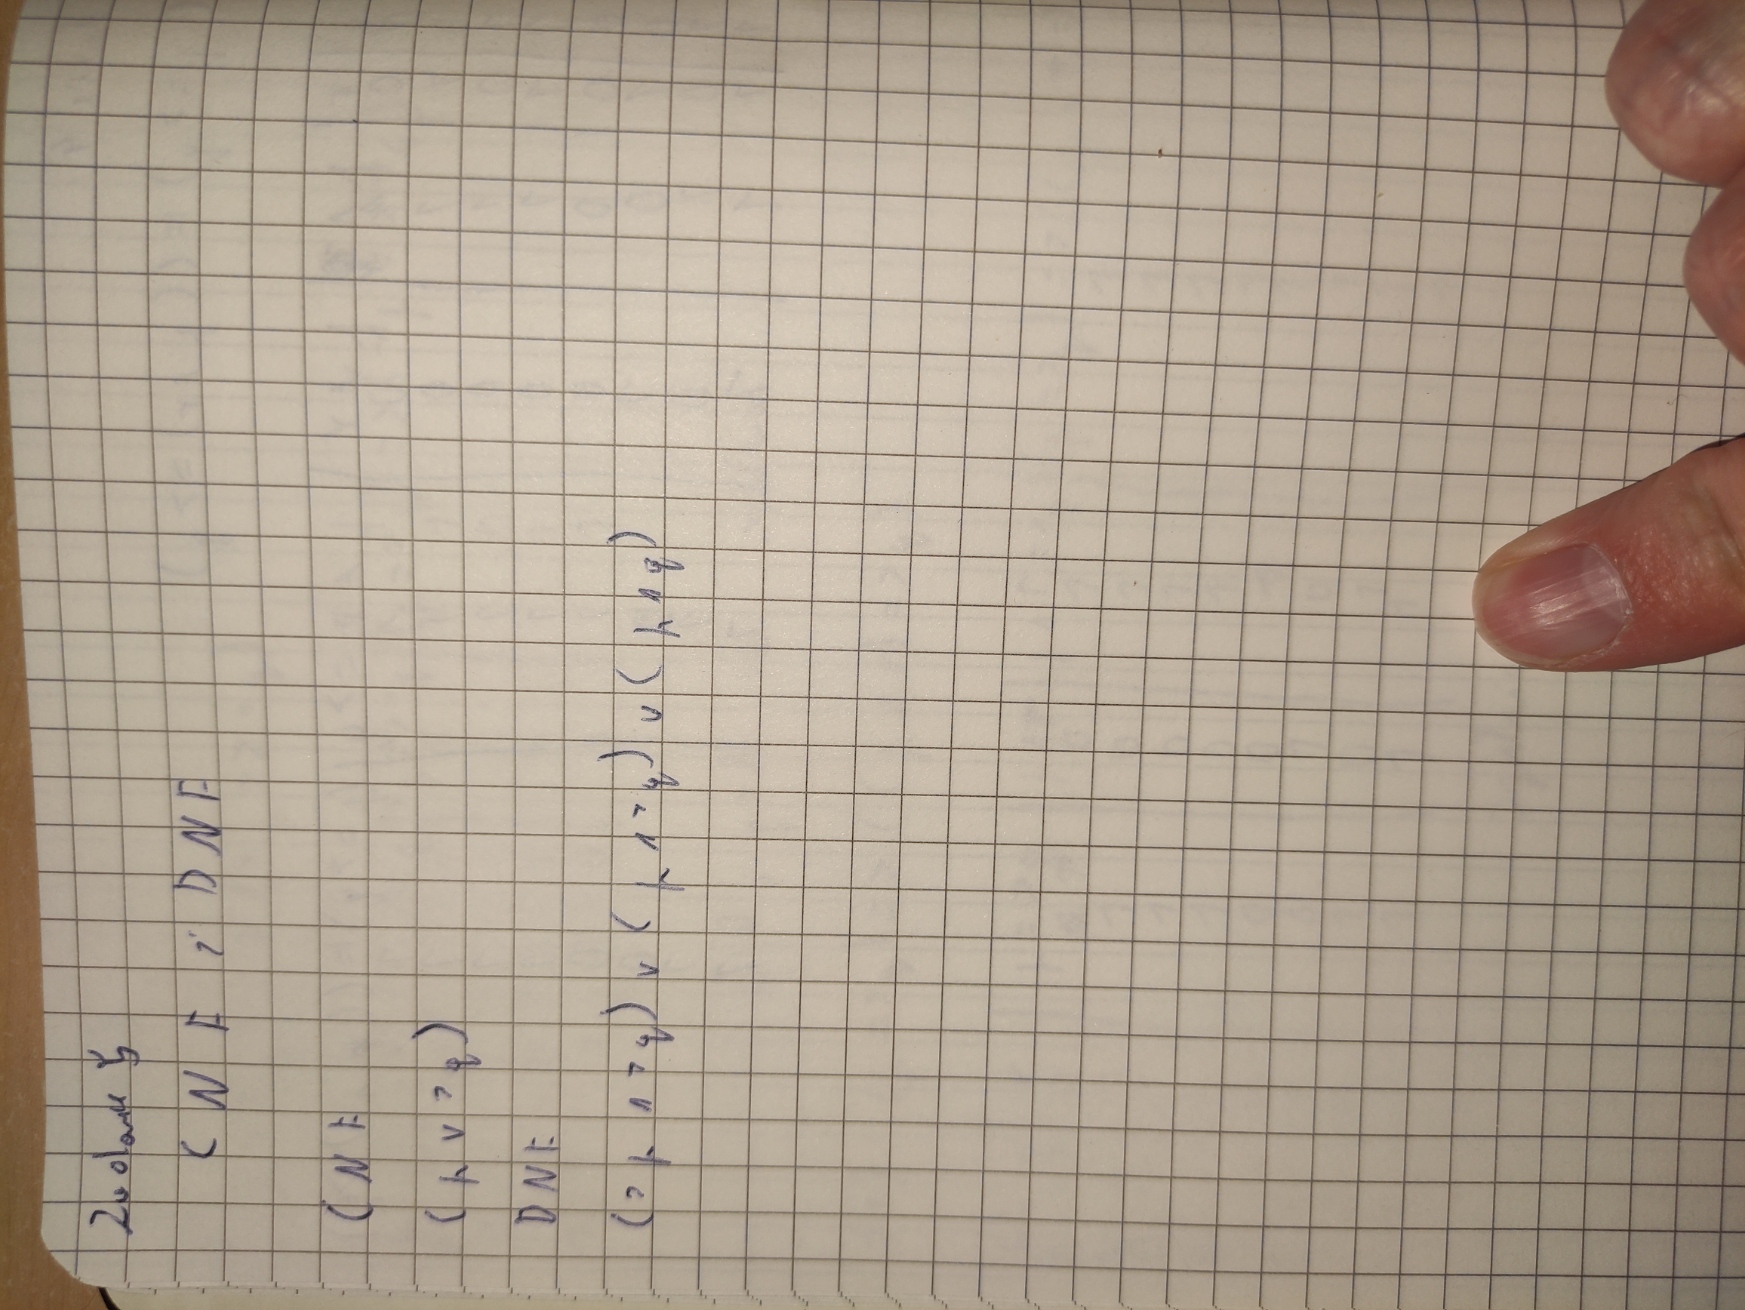 Zadanie 5
CNF i DNF
CNF
(p ∨ ¬q)
DNF
(¬p ∧ ¬q) ∨ (p ∧ ¬q) ∨ (p ∧ q)